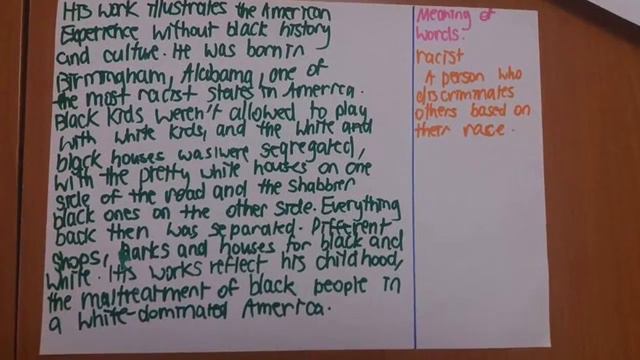 His work illustrates the American
Experience without black history
and culture. He was born in
Birmingham, Alabama, one of
the most racist states in America.
Black kids weren't allowed to play
with white kids, and the white and
black houses was/were segregated,
with the pretty white houses on one
side of the road and the shabbier
black ones on the other side. Everything
back then was separated. Different
shops, parks and houses for black and
white. His works reflect his childhood,
the maltreatment of black people in
a white-dominated America.
Meaning of
words.
racist
A person who
discriminates
others based on
their race.